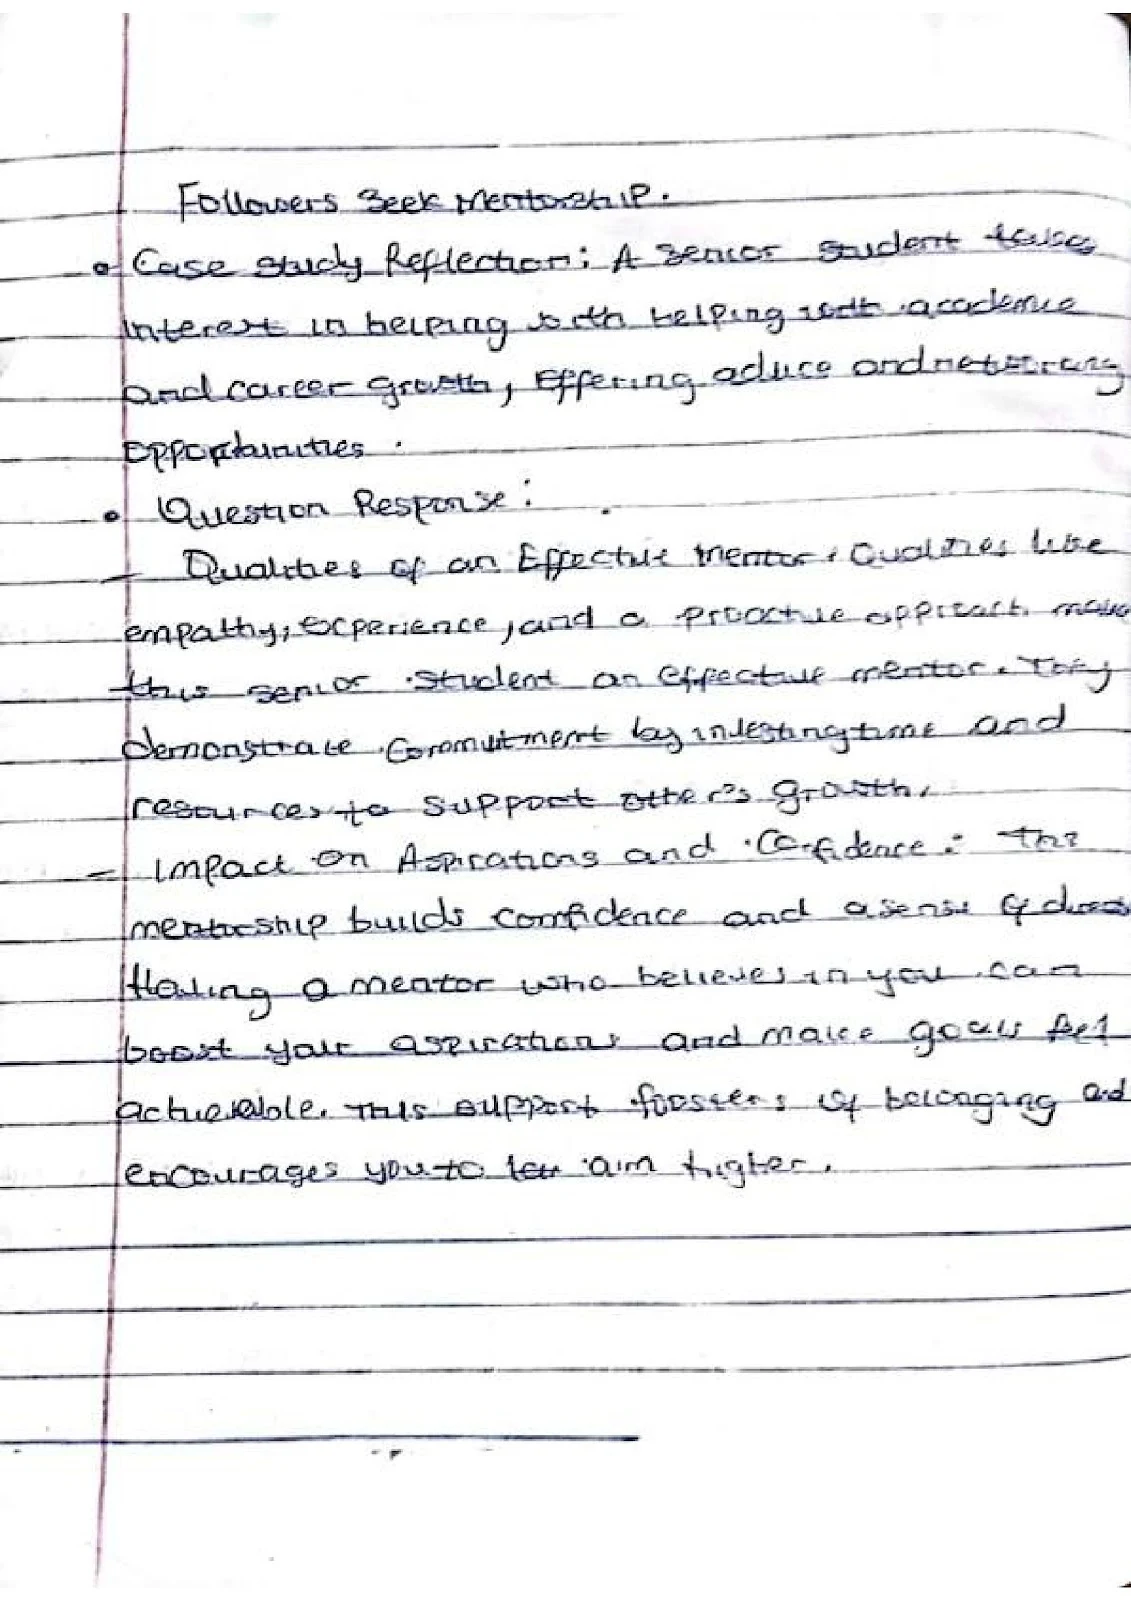 Followers Seek Mentorship.
• Case Study Reflection: A senior student takes
interest in helping with helping with academic
and career growth, offering advice and networking
opportunities.
• Question Response:
- Qualities of an Effective Mentor: Qualities like
empathy, experience, and a proactive approach make
this senior student an effective mentor. They
demonstrate commitment by investing time and
resources to support other's growth.
- Impact on Aspirations and Confidence: The
mentorship builds confidence and a sense of
Having a mentor who believes in you can
boost your aspirations and make goals feel
achievable. This support fossters of belonging and
encourages you to aim higher.